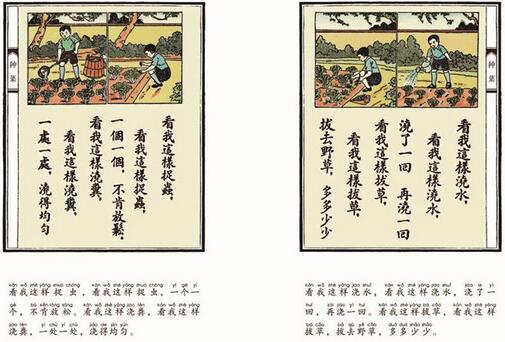 种菜
看我這樣捉蟲，
看我這樣捉蟲，
一個一個，不肯放鬆。
看我這樣澆糞，
看我這樣澆糞，
一處一處，澆得均勻
kàn wǒ zhè yàng zhuō chóng kàn wǒ zhè yàng zhuō chóng yí gè yí
看我这样捉虫，看我这样捉虫，一个一
gè bù kěn fàng sōng kàn wǒ zhè yàng jiāo fèn kàn wǒ zhè yàng
个，不肯放松。看我这样浇粪，看我这样
jiāo fèn yí chù yí chù jiāo de jūn yún
浇粪，一处一处，浇得均匀。
种菜
看我這樣澆水，
看我這樣澆水，
澆了一回 再澆一回
看我這樣拔草，
看我這樣拔草，
拔去野草，多多少少
kàn wǒ zhè yàng jiāo shuǐ kàn wǒ zhè yàng jiāo shuǐ jiāo le yì
看我这样浇水，看我这样浇水，浇了一
huí zài jiāo yì huí kàn wǒ zhè yàng bá cǎo kàn wǒ zhè yàng
回，再浇一回。看我这样拔草，看我这样
bá cǎo bá qù yě cǎo duō duō shǎo shǎo
拔草，拔去野草，多多少少。